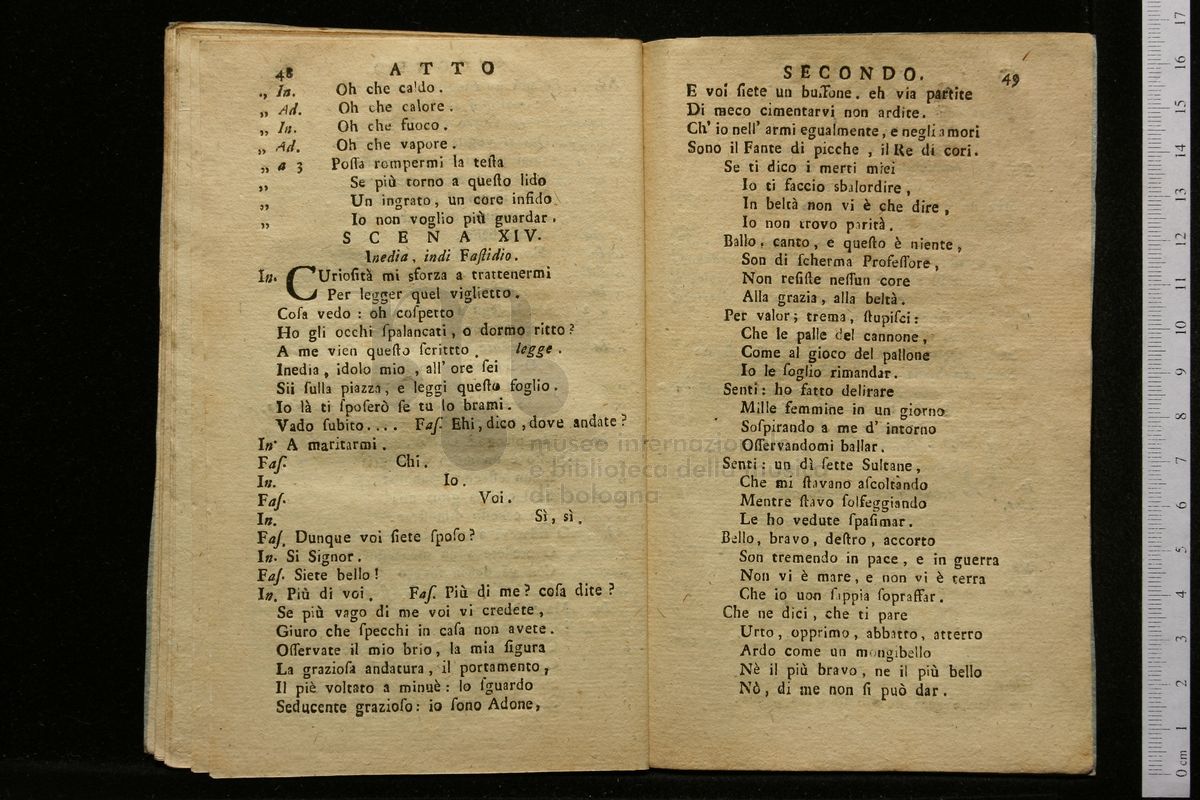 48 ATTO
„ In. Oh che caldo.
„ Ad. Oh che calore.
„ In. Oh che fuoco.
„ Ad. Oh che vapore.
„ a 3 Poſſa rompermi la teſta
„ Se più torno a queſto lido
„ Un ingrato, un core infido
„ Io non voglio più guardar.
SCENA XIV.
Inedia, indi Faſtidio.
In. CUrioſità mi sforza a trattenermi
Per legger quel viglietto.
Coſa vedo: oh coſpetto
Ho gli occhi ſpalancati, o dormo ritto?
A me vien queſto ſcrittto. legge.
Inedia, idolo mio, all' ore ſei
Sii ſulla piazza, e leggi queſto foglio.
Io là ti ſpoſerò ſe tu lo brami.
Vado ſubito.... Faſ. Ehi, dico, dove andate?
In. A maritarmi.
Faſ. Chi.
In. Io.
Faſ. Voi.
In. Sì, sì.
Faſ. Dunque voi ſiete ſpoſo?
In. Si Signor.
Faſ. Siete bello!
In. Più di voi. Faſ. Più di me? coſa dite?
Se più vago di me voi vi credete,
Giuro che ſpecchi in caſa non avete.
Oſſervate il mio brio, la mia figura
La grazioſa andatura, il portamento,
Il piè voltato a minuè: lo ſguardo
Seducente grazioſo: io ſono Adone,
SECONDO. 49
E voi ſiete un buffone. eh via partite
Di meco cimentarvi non ardite.
Ch' io nell' armi egualmente, e negli amori
Sono il Fante di picche, il Re di cori.
Se ti dico i merti miei
Io ti faccio sbalordire,
In beltà non vi è che dire,
Io non trovo parità.
Ballo, canto, e queſto è niente,
Son di ſcherma Profeſſore,
Non reſiſte neſſun core
Alla grazia, alla beltà.
Per valor; trema, ſtupiſci:
Che le palle del cannone,
Come al gioco del pallone
Io le ſoglio rimandar.
Senti: ho fatto delirare
Mille femmine in un giorno
Soſpirando a me d' intorno
Oſſervandomi ballar.
Senti: un dì ſette Sultane,
Che mi ſtavano aſcoltando
Mentre ſtavo ſolfeggiando
Le ho vedute ſpaſimar.
Bello, bravo, deſtro, accorto
Son tremendo in pace, e in guerra
Non vi è mare, e non vi è terra
Che io uon ſappia ſopraffar.
Che ne dici, che ti pare
Urto, opprimo, abbatto, atterro
Ardo come un mongibello
Nè il più bravo, ne il più bello
Nò, di me non ſi può dar.
museo internazionale
e biblioteca della musica
di bologna
0 cm 1 2 3 4 5 6 7 8 9 10 11 12 13 14 15 16 17